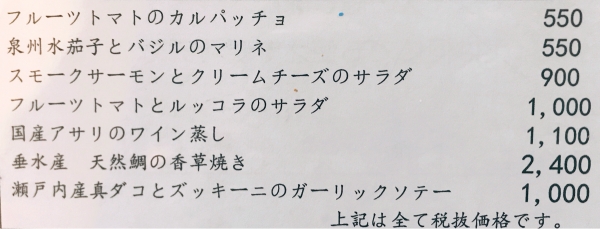 フルーツトマトのカルパッチョ 550
泉州水茄子とバジルのマリネ 550
スモークサーモンとクリームチーズのサラダ 900
フルーツトマトとルッコラのサラダ 1,000
国産アサリのワイン蒸し 1,100
垂水産　天然鯛の香草焼き 2,400
瀬戸内産真ダコとズッキーニのガーリックソテー 1,000
上記は全て税抜価格です。